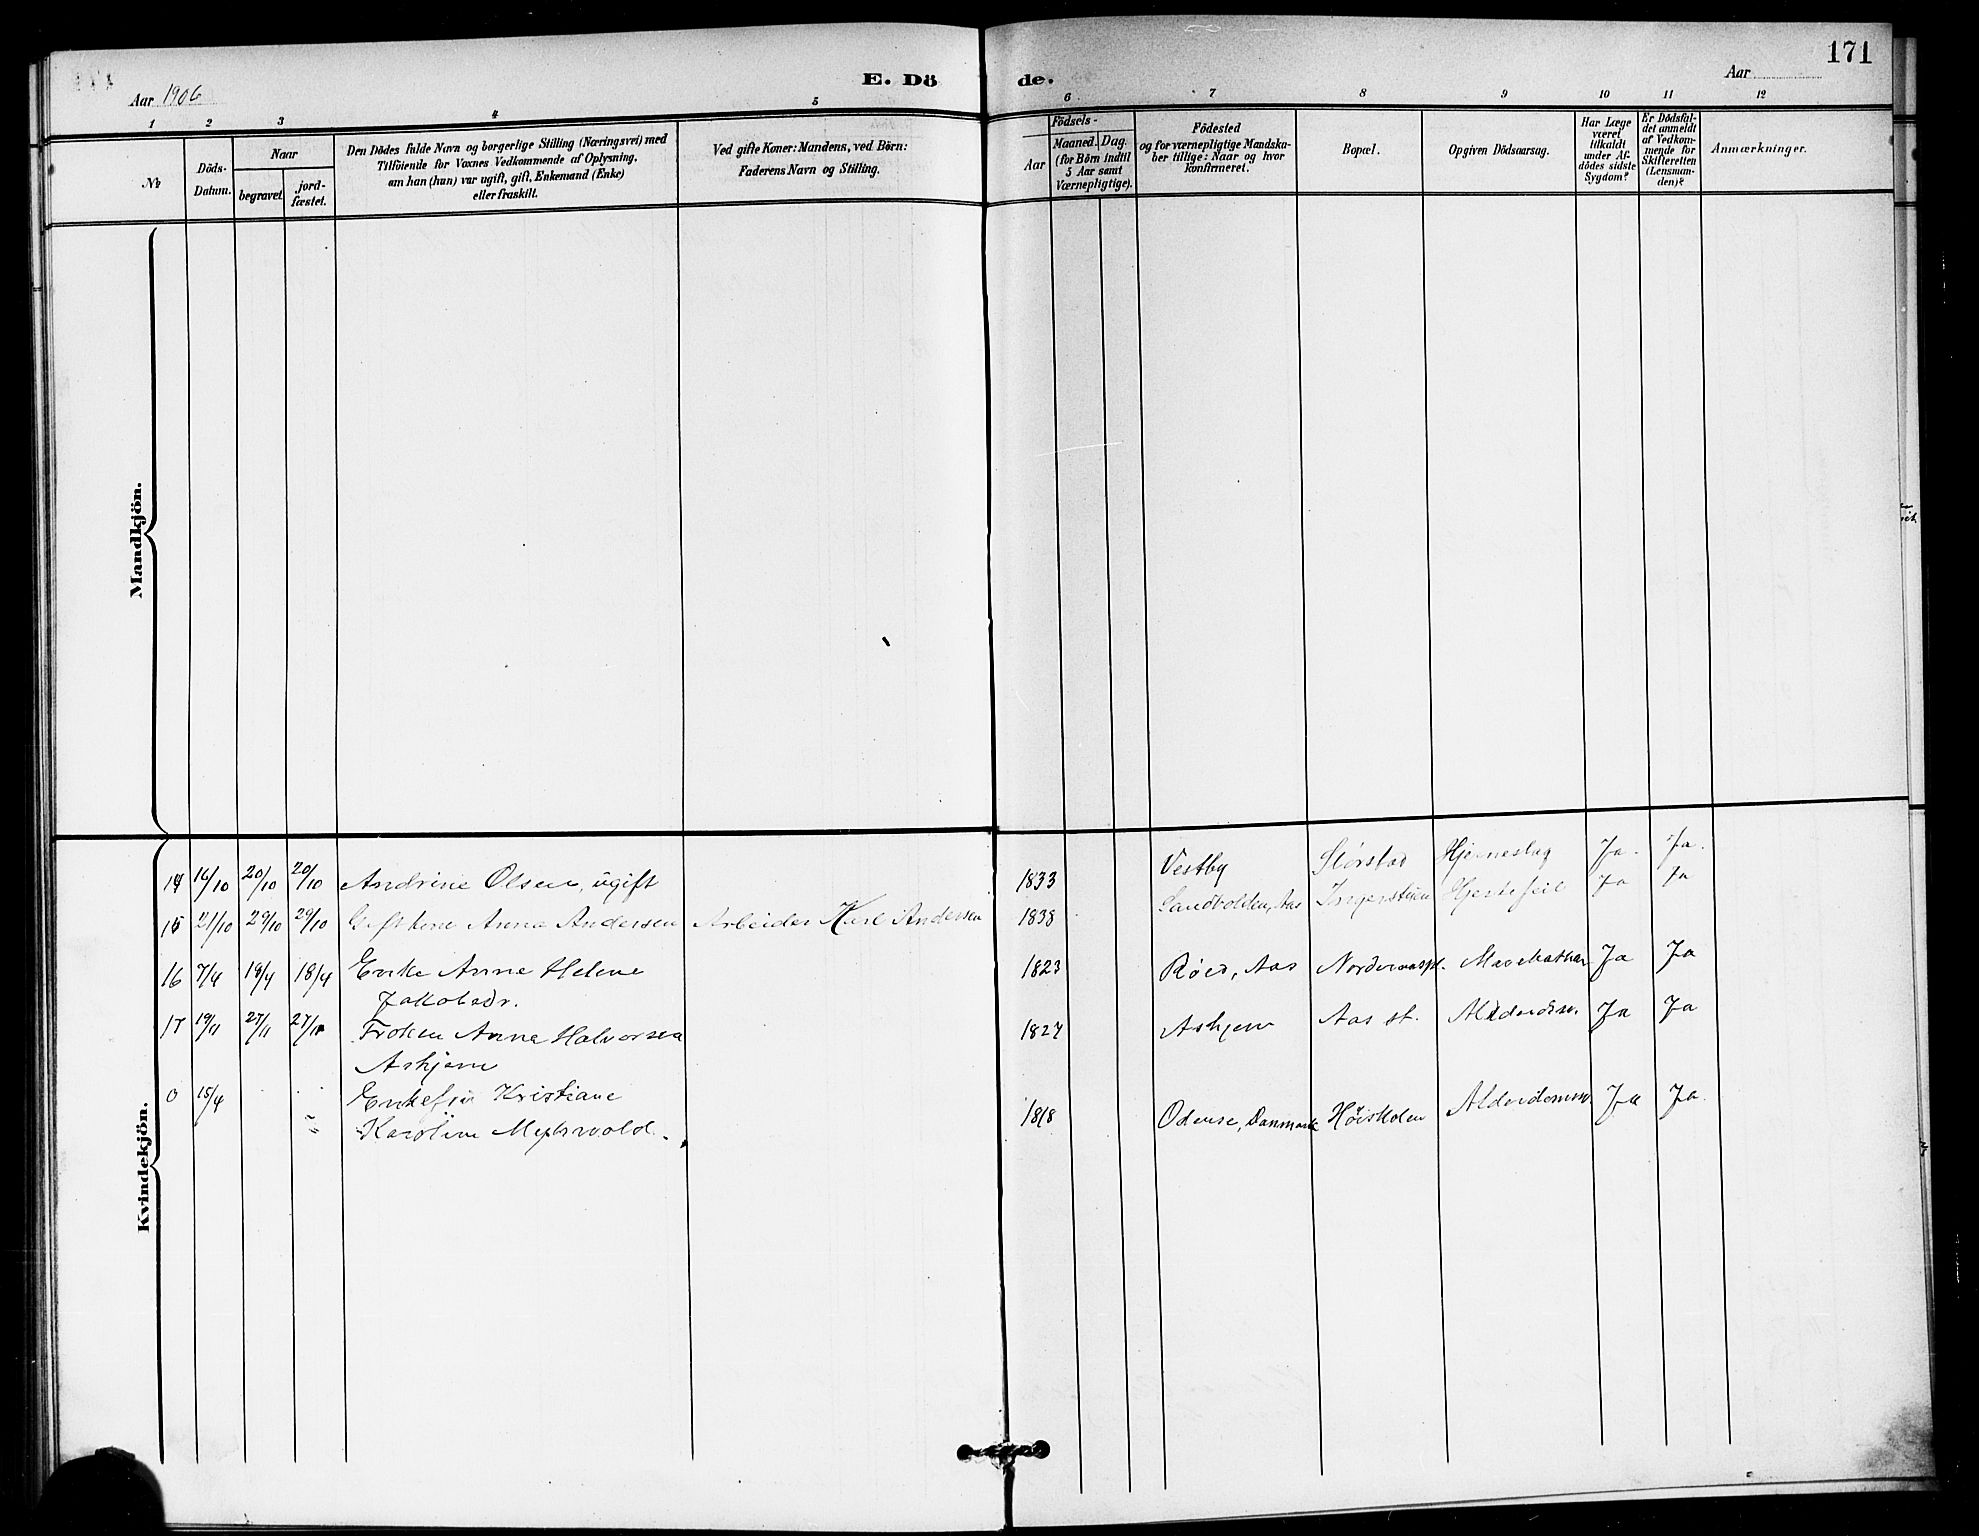 171
Aar 1906
E. Dö
de.
Aar
1 2 3 4 5
6 7 8 9 10 11 12
№
Döds-Datum.
Naar
begravet
jord-fæstet.
Den Dödes fulde Navn og borgerlige Stilling (Næringsvei) med
Tilföiende for Voxnes Vedkommende af Oplysning,
om han (hun) var ugift, gift, Enkemand (Enke)
eller fraskilt.
Ved gifte Koner: Mandens, ved Börn:
Faderens Navn og Stilling.
Födsels-
Aar
Maaned.
Dag.
(for Börn indtil
5 Aar samt
Værnepligtige).
Födested
og for værnepligtige Mandska-
ber tillige: Naar og hvor
konfirmeret.
Bopæl.
Opgiven Dödsaarsag.
Har Læge
været
tilkaldt
under Af-
dödes sidste
Sygdom?
Er Dödsfal-
det anmeldt
af Vedkom-
mende for
Skifteretten
(Lensman-
den)?
Anmærkninger.
Mandkjön.
Kvindekjön.
14 16/10 20/10 20/10 Andrine Olsen, ugift 1833 Vestby Ja. Ja.
15 21/10 29/10 29/10 Gift kone Anna Andersen Arbeider Karl Andersen 1838 Aas Hjertefeil Ja Ja
16 7/4 18/4 18/4 Enke Anne Helene 1823 Röed, Aas Ja Ja
Jakobsdr.
17 19/11 27/11 27/11 Fröken Anne Halvorsen 1827 Askjem Aas st. Ja Ja
Askjem
0 15/4 Enkefru Kristiane
Karoline 1818 Odense, Danmark Höiskolen Ja Ja.